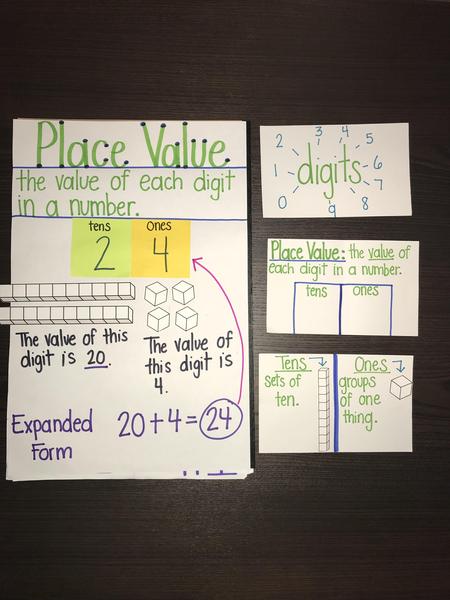 Place Value
the value of each digit
in a number.
tens
ones
2
4
The value of this
digit is 20.
The value of
this digit is
4.
Expanded
Form
20+4=24
digits
0
1
2
3
4
5
6
7
8
9
Place Value: the value of
each digit in a number.
tens
ones
Tens
sets of
ten.
Ones
groups
of one
thing.